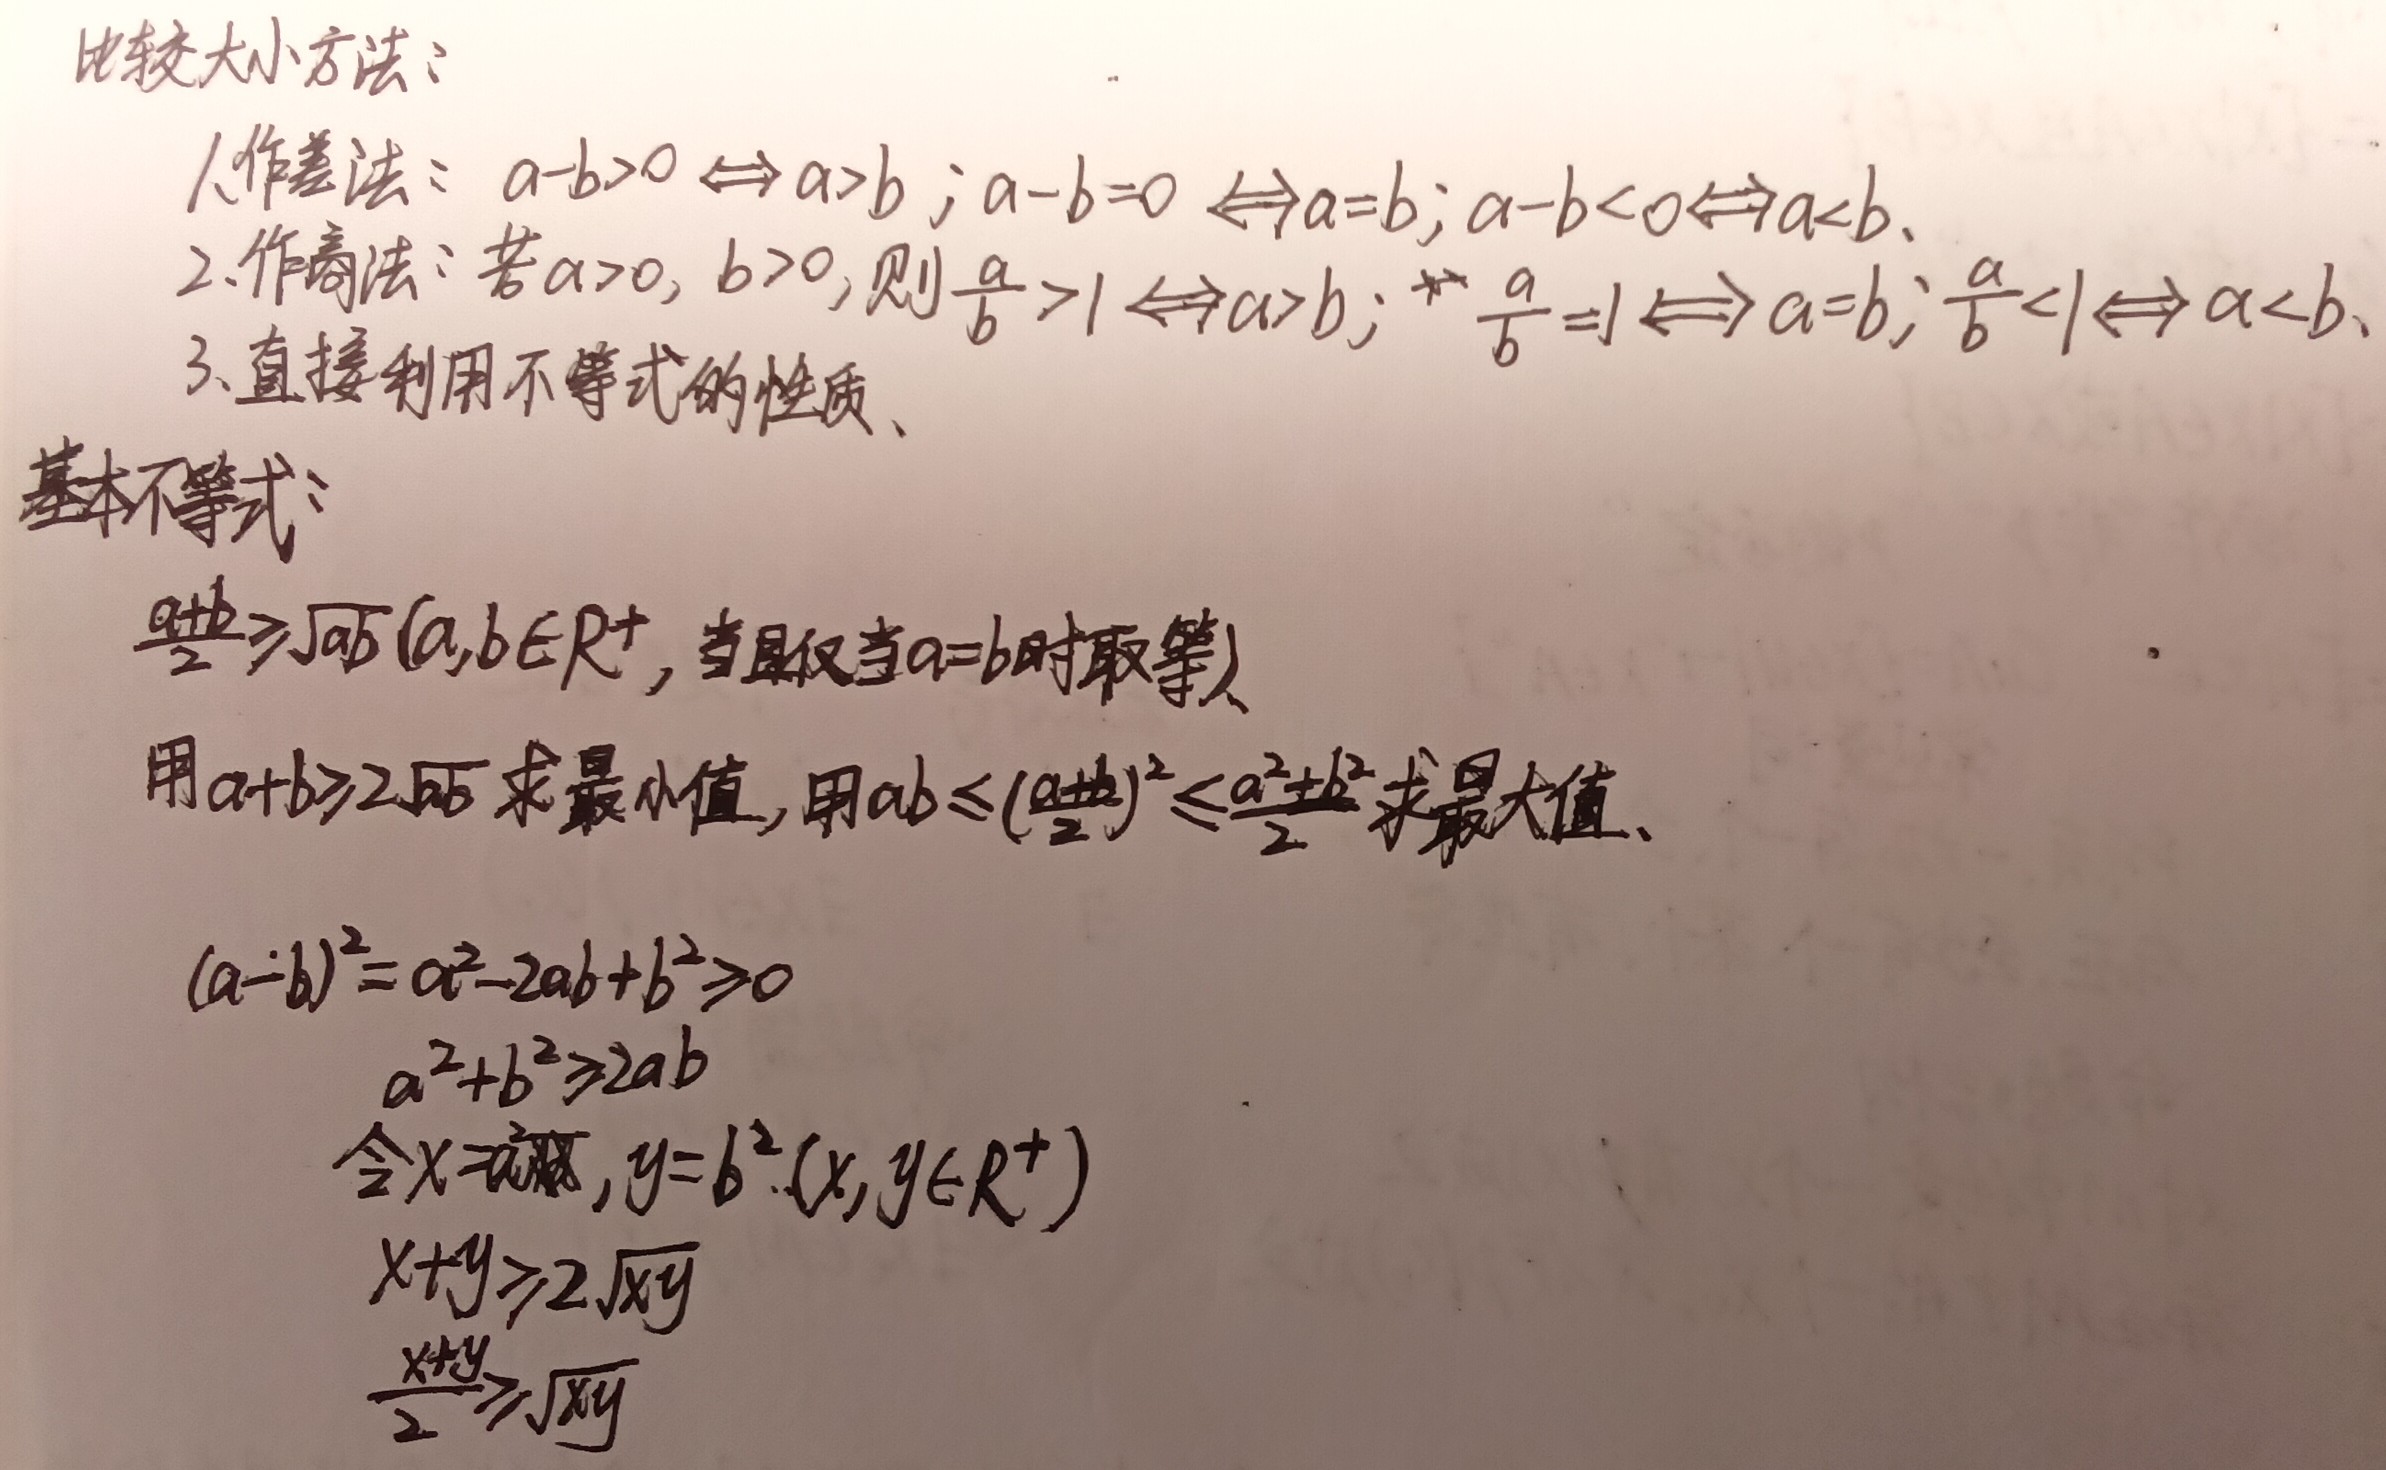 比较大小方法：
1、作差法：a-b>0⟺a>b；a-b=0⟺a=b；a-b<0⟺a<b、
2、作商法：若a>0，b>0，则a/b>1⟺a>b；a/b=1⟺a=b；a/b<1⟺a<b、
3、直接利用不等式的性质、
基本不等式：
(a+b)/2≥√ab(a,b∈R⁺，当且仅当a=b时取等)、
用a+b≥2√ab求最小值，用ab≤((a+b)/2)²≤(a²+b²)/2求最大值、
(a-b)²=a²-2ab+b²≥0
a²+b²≥2ab
令x=a²，y=b².(x,y∈R⁺)
x+y≥2√xy
(x+y)/2≥√xy